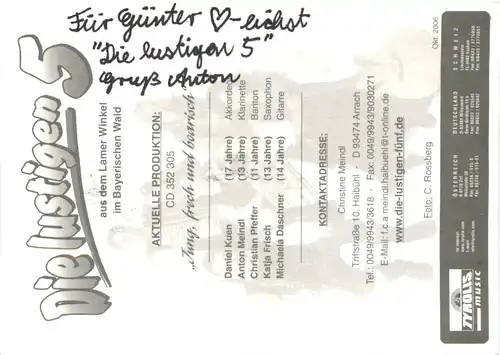 Für Günter ♡-lichst
"Die lustigen 5"
Gruß Anton
Die lustigen 5
aus dem Lamer Winkel
im Bayerischen Wald
AKTUELLE PRODUKTION:
CD 352 905
"Jung, frech und boarisch"
Daniel Kuen (17 Jahre) Akkordeon
Anton Meindl (13 Jahre) Klarinette
Christian Pfeffer (11 Jahre) Bariton
Katja Frisch (13 Jahre) Saxophon
Michaela Daschner (14 Jahre) Gitarre
KONTAKTADRESSE:
Christine Meindl
Triftstraße 10, Haibühl · D 93474 Arrach
Tel.: 0049/9943/3618 · Fax: 0049/9943/9030271
E-Mail: f.c.a.meindl.haibuehl@t-online.de
www.die-lustigen-fünf.de
Foto: C. Rossberg
Okt. 2006
TYROLIS
music
ÖSTERREICH
DEUTSCHLAND
SCHWEIZ